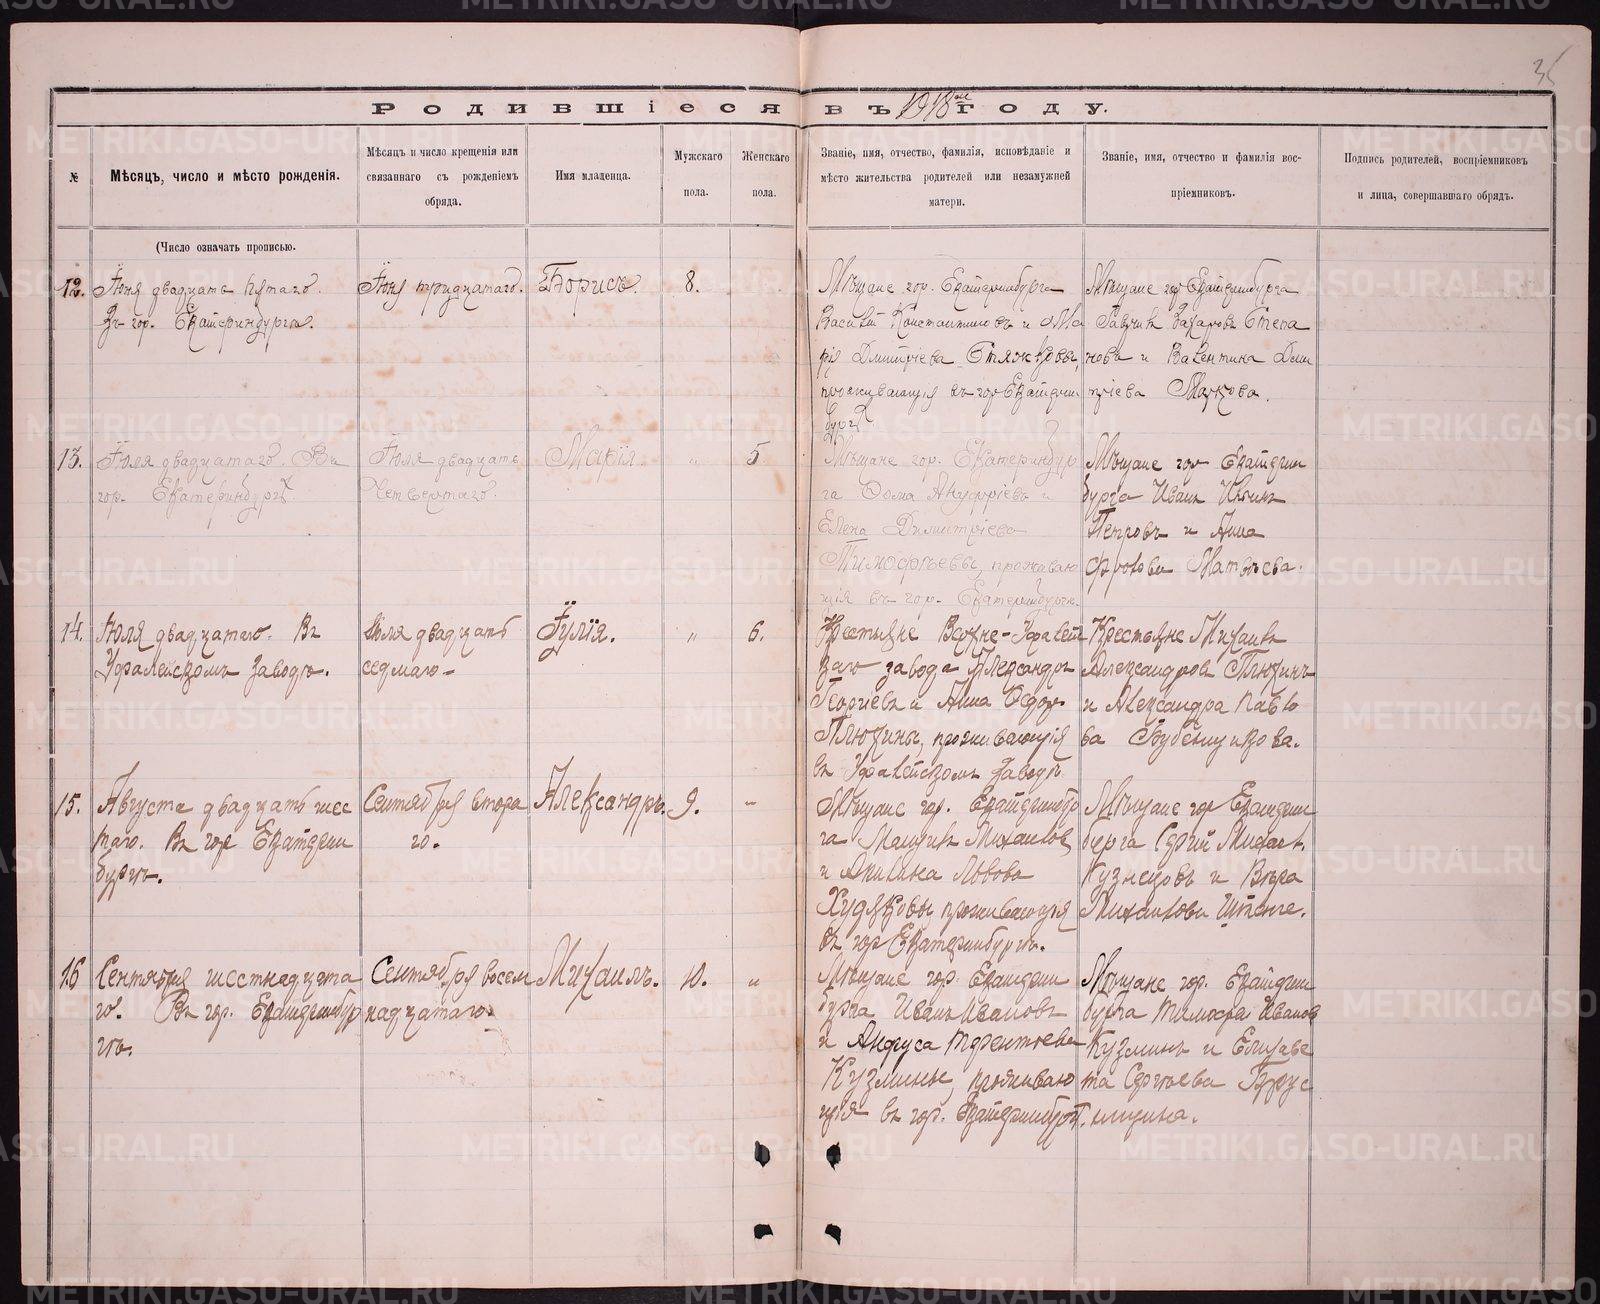 35
Родившіеся въ 1918ом году.
№
Мѣсяцъ, число и мѣсто рожденія.
Мѣсяцъ и число крещенія или
связаннаго съ рожденіемъ
обряда.
Имя младенца.
Мужскаго
пола.
Женскаго
пола.
Званіе, имя, отчество, фамилія, исповѣданіе и
мѣсто жительства родителей или незамужней
матери.
Званіе, имя, отчество и фамилія вос-
пріемниковъ.
Подпись родителей, воспріемниковъ
и лица, совершавшаго обрядъ.
(Число означать прописью.
12.
Іюня двадцать пятаго.
Въ гор. Екатеринбургѣ.
Іюня тридцатаго.
Борисъ.
8.
Мѣщане гор. Екатеринбурга
Василій Константиновъ и Ма
рія Димитріева Стяжковы,
проживающія въ гор Екатерин
бургѣ
Мѣщане гор Екатеринбурга
Захаровъ Степа
новъ и Валентина Дми
тріева Маркова.
13.
Іюля двадцатаго. Въ
гор. Екатеринбургѣ
Іюля двадцать
четвертаго.
Марія
"
5
Мѣщане гор. Екатеринбур
га Фома Ануфріевъ и
Елена Димитріева
Тимофѣевы, проживаю
щія въ гор. Екатеринбургѣ.
Мѣщане гор Екатерин
бурга Иванъ Ильинъ
Петровъ и Анна
Фролова Матвѣева.
14.
Іюля двадцатаго. Въ
Уфалейскомъ заводѣ.
Іюля двадцать
седмаго
Іулія.
"
6.
Крестьяне Верхне-Уфалей
скаго завода Александръ
Георгіевъ и Анна Федор.
Плюхины, проживающія
въ Уфалейскомъ заводѣ
Крестьяне Михаилъ
Александровъ Плюхинъ
и Александра Павло
ва
15.
Августа двадцать шес
таго. Въ гор Екатерин
бургѣ.
Сентября втора
го.
Александръ.
9.
"
Мѣщане гор. Екатеринбур
га Михаиловъ
и Акилина Львова
Худяковы проживающія
въ гор Екатеринбургѣ.
Мѣщане гор Екатерин
бурга Сергій Михаил.
Кузнецовъ и Вѣра
Михаилова
16
Сентября шестнадцата
го. Въ гор. Екатеринбур
гѣ.
Сентября восем
надцатаго.
Михаилъ.
10.
"
Мѣщане гор. Екатерин
бурга Иванъ Ивановъ
и Анфуса Терентіева
Кузмины, проживаю
щія въ гор. Екатеринбург.
Мѣщане гор. Екатерин
бурга Тимофей Иванов
Кузминъ и Елизаве
та Сергѣева
METRIKI.GASO-URAL.RU